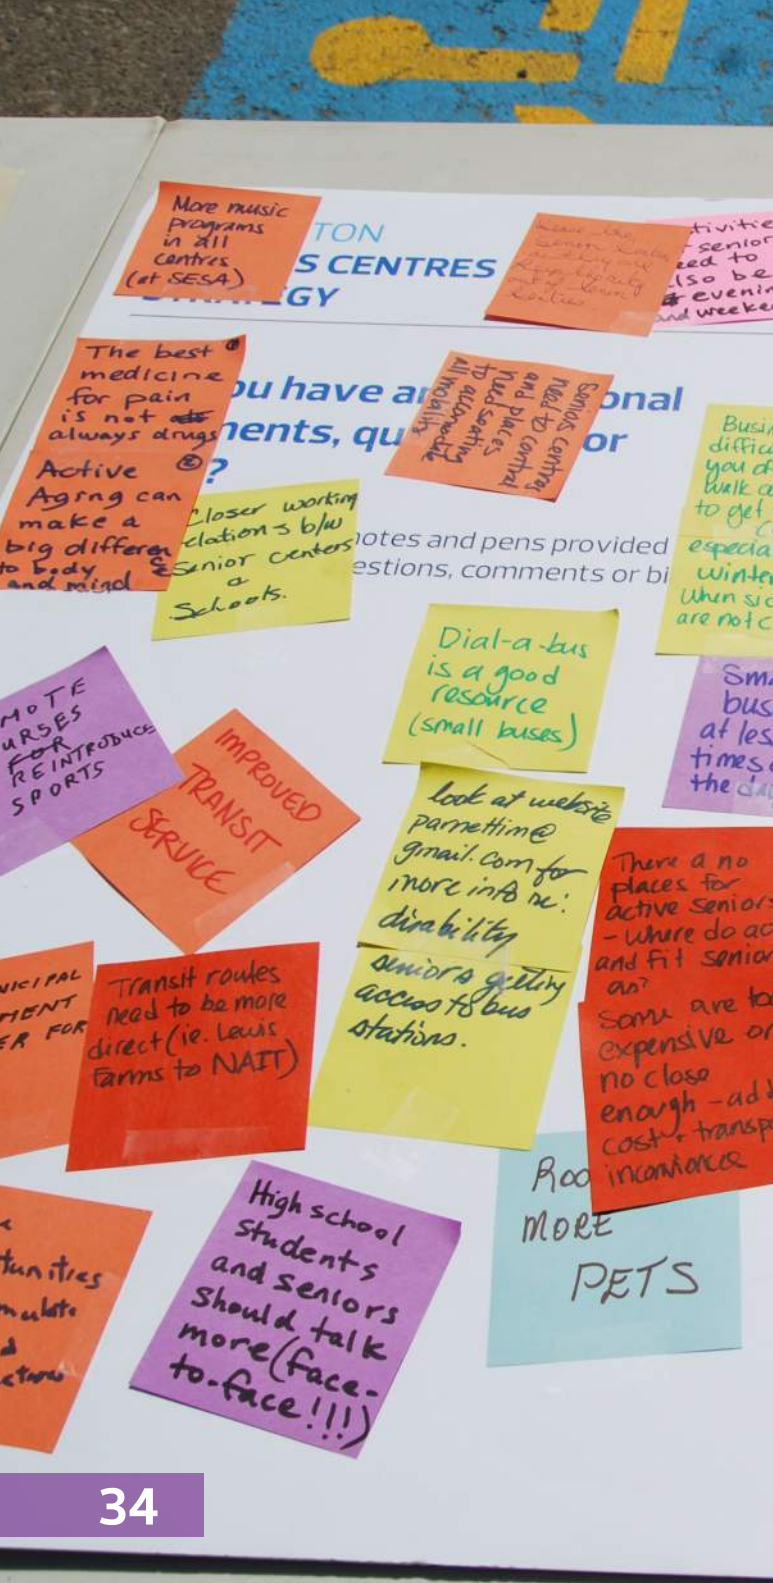 More music
programs
in all
centres
(at SESA)
TON
S CENTRES
STRATEGY
tivitie
senior
eed to
lso be
evenin
and weeke
The best
medicine
for pain
is not
always drugs
Active
Aging can
make a
big differen
to body
and mind
ou have an onal
ments, qu or
?
Seniors centres
need to central
and places
need seating
to accomodate
all mobility
Closer working
relations b/w
Senior centers
a
Schools.
notes and pens provided
estions, comments or bi
Busi
difficu
you of
walk a
to get
especia
winter
when sid
are not c
Dial-a-bus
is a good
resource
(small buses)
Sma
bus
at les
times
the da
MOTE
URSES
FOR
REINTRODUCE
SPORTS
IMPROVED
TRANSIT
SERVICE
look at website
parnettim@
gmail.com for
more info re:
disability
seniors getting
access to bus
stations.
There a no
places for
active seniors
- where do ac
and fit senior
as?
Some are too
expensive or
no close
enough - add
cost + transp
inconvience
NICIPAL
MENT
ER FOR
Transit routes
need to be more
direct (ie. Lewis
Farms to NAIT)
Roo
MORE
PETS
tunities
mulate
High school
students
and seniors
should talk
more (face-
to-face!!!)
34